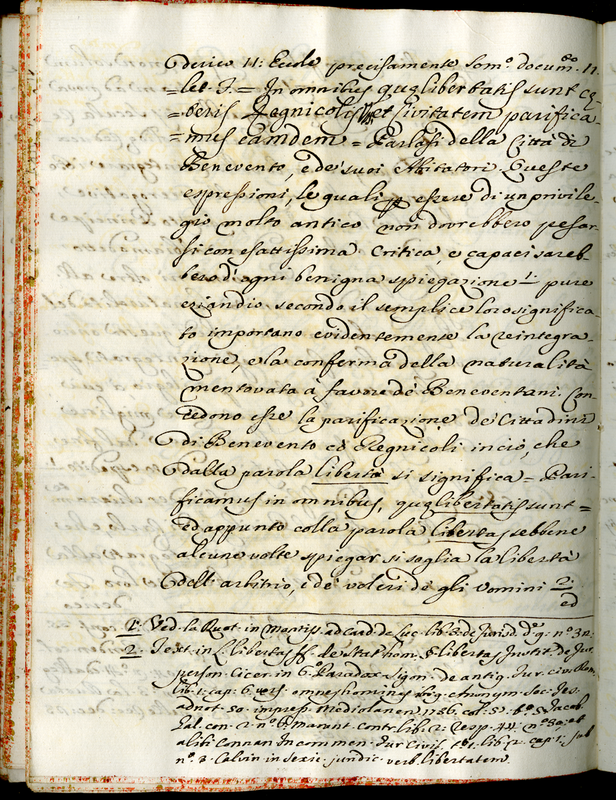 derico II: Ecole precisamente Som.º docum.º 11
let. I. = In omnibus, quę libertatis sunt ce-
=teris Regnicolis, et Civitatem parifica-
=mus eamdem = Parlasi della Città di
Benevento, e de' suoi Abitatori. Queste
espressioni, le quali p essere di un privile-
gio molto antico non dovrebbero pesar-
si con esattissima Critica, e capaci sareb-
bero d'ogni benigna spiegazione 1. pure
eziandio secondo il semplice loro significa-
to importano evidentemente la reintegra-
zione, e la conferma della naturalità
mentovata à favore de' Beneventani. Con-
tedono esse la parificazione de' Cittadini
di Benevento co' Regnicoli in ciò, che
dalla parola libertà si significa = Pari-
ficamus in omnibus, quę libertatis sunt =
ed appunto colla parola libertas sebbene
alcune volte spiegar si soglia la libertà
dell'arbitrio, e de' voleri de gli Uomini 2.
ed
1. Ved. la Ruot. in Mantiss. ad Card. de Luc. lib. de Jurisd. n.º 3
2. Text. in L. libertas ff. de Stat. hom. § libertas Instit. de Jur.
person. Cicer. in 6.º Paradox. Sigon. de antiq. Jur. civ. Rom.
lib. 1. cap. 6. vers. omnes homines
adnot. 50. impress. Mediolanen. 1736. col. 51.
Gal. con. 2. n.º 6 Marant. contr. lib. 2. resp. 44. n.º 30, et
alibi Connan in commen. Jur. Civil. lib. 2. cap. 1. sub
n.º 3. Calvin in Lexic. juridic. verb. libertatem.